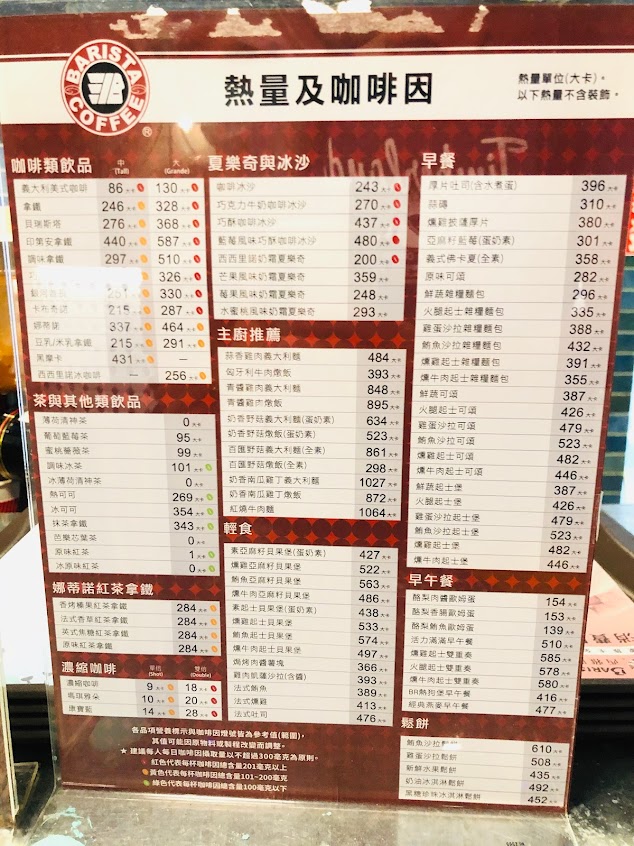 BARISTA COFFEE ®
熱量及咖啡因
熱量單位(大卡)。
以下熱量不含裝飾。
咖啡類飲品 中(Tall) 大(Grande)
義大利美式咖啡 86大卡 130大卡
拿鐵 246大卡 328大卡
貝瑞斯塔 276大卡 368大卡
印第安拿鐵 440大卡 587大卡
調味拿鐵 297大卡 510大卡
326大卡
330大卡
卡布奇諾 215大卡 287大卡
娜蒂諾 337大卡 464大卡
豆乳/米乳拿鐵 215大卡 291大卡
黑摩卡 431大卡 —
西西里諾冰咖啡 — 256大卡
茶與其他類飲品
薄荷清神茶 0大卡
葡萄藍莓茶 95大卡
蜜桃薔薇茶 99大卡
調味冰茶 101大卡
冰薄荷清神茶 0大卡
熱可可 269大卡
冰可可 354大卡
抹茶拿鐵 343大卡
芭樂芯葉茶 0大卡
原味紅茶 1大卡
冰原味紅茶 0大卡
娜蒂諾紅茶拿鐵
香烤榛果紅茶拿鐵 284大卡
法式香草紅茶拿鐵 284大卡
英式焦糖紅茶拿鐵 284大卡
原味紅茶拿鐵 284大卡
濃縮咖啡 單份(Shot) 雙份(Double)
濃縮咖啡 9大卡 18大卡
瑪琪雅朵 10大卡 20大卡
康寶藍 14大卡 28大卡
夏樂奇與冰沙
咖啡冰沙 243大卡
巧克力牛奶咖啡冰沙 270大卡
巧酥咖啡冰沙 437大卡
藍莓風味巧酥咖啡冰沙 480大卡
西西里諾奶霜夏樂奇 200大卡
芒果風味奶霜夏樂奇 359大卡
莓果風味奶霜夏樂奇 248大卡
水蜜桃風味奶霜夏樂奇 293大卡
主廚推薦
蒜香雞肉義大利麵 484大卡
匈牙利牛肉燉飯 393大卡
青醬雞肉義大利麵 848大卡
青醬雞肉燉飯 895大卡
奶香野菇義大利麵(蛋奶素) 634大卡
奶香野菇燉飯(蛋奶素) 523大卡
百匯野菇義大利麵(全素) 861大卡
百匯野菇燉飯(全素) 298大卡
奶香南瓜雞丁義大利麵 1027大卡
奶香南瓜雞丁燉飯 872大卡
紅燒牛肉麵 1064大卡
輕食
素亞麻籽貝果堡(蛋奶素) 427大卡
燻雞亞麻籽貝果堡 522大卡
鮪魚亞麻籽貝果堡 563大卡
燻牛肉亞麻籽貝果堡 486大卡
素起士貝果堡(蛋奶素) 438大卡
燻雞起士貝果堡 533大卡
鮪魚起士貝果堡 574大卡
燻牛肉起士貝果堡 497大卡
焗烤肉醬薯塊 366大卡
雞肉凱薩沙拉(含醬) 393大卡
法式鮪魚 389大卡
法式燻雞 413大卡
法式吐司 476大卡
早餐
厚片吐司(含水煮蛋) 396大卡
蒜磚 310大卡
燻雞披薩厚片 380大卡
亞麻籽藍莓(蛋奶素) 301大卡
義式佛卡夏(全素) 358大卡
原味可頌 282大卡
鮮蔬雜糧麵包 296大卡
火腿起士雜糧麵包 335大卡
雞蛋沙拉雜糧麵包 388大卡
鮪魚沙拉雜糧麵包 432大卡
燻雞起士雜糧麵包 391大卡
燻牛肉起士雜糧麵包 355大卡
鮮蔬可頌 387大卡
火腿起士可頌 426大卡
雞蛋沙拉可頌 479大卡
鮪魚沙拉可頌 523大卡
燻雞起士可頌 482大卡
燻牛肉起士可頌 446大卡
鮮蔬起士堡 387大卡
火腿起士堡 426大卡
雞蛋沙拉起士堡 479大卡
鮪魚沙拉起士堡 523大卡
燻雞起士堡 482大卡
燻牛肉起士堡 446大卡
早午餐
酪梨肉醬歐姆蛋 154大卡
酪梨香腸歐姆蛋 153大卡
酪梨鮪魚歐姆蛋 139大卡
活力滿滿早午餐 510大卡
燻雞起士雙重奏 585大卡
火腿起士雙重奏 578大卡
燻牛肉起士雙重奏 580大卡
BR熱狗堡早午餐 416大卡
經典燕麥早午餐 477大卡
鬆餅
鮪魚沙拉鬆餅 610大卡
雞蛋沙拉鬆餅 508大卡
新鮮水果鬆餅 435大卡
奶油冰淇淋鬆餅 492大卡
黑糖珍珠冰淇淋鬆餅 452大卡
各品項營養標示與咖啡因燈號皆為參考值(範圍)，
其值可能因原物料或製程改變而調整。
★ 建議每人每日咖啡因攝取量以不超過300毫克為原則。
紅色代表每杯咖啡因總含量201毫克以上
黃色代表每杯咖啡因總含量101~200毫克
綠色代表每杯咖啡因總含量100毫克以下